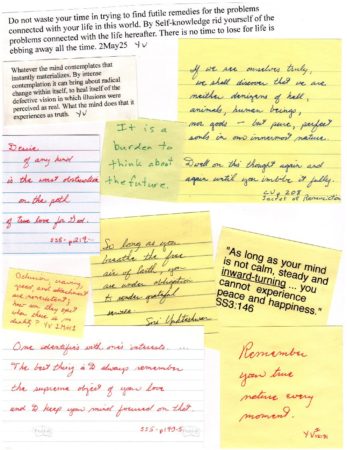 Do not waste your time in trying to find futile remedies for the problems
connected with your life in this world. By Self-knowledge rid yourself of the
problems connected with the life hereafter. There is no time to lose for life is
ebbing away all the time. 2May25 YV
Whatever the mind contemplates that
instantly materializes. By intense
contemplation it can bring about radical
change within itself, to heal itself of the
defective vision in which illusions were
perceived as real. What the mind does that it
experiences as truth. YV
If we see ourselves truly,
we shall discover that we are
neither denizens of hell,
animals, human beings,
nor gods - but pure, perfect
souls in our innermost nature.
Dwell on this thought again and
again until you imbibe it fully.
p 208
It is a
burden to
think about
the future.
Desire
of any kind
is the worst obstruction
on the path
of true love for God.
SSS-p219
So long as you
breathe the free
air of earth, you
are under obligation
to render grateful
service.
Sri Yukteshwar
"As long as your mind
is not calm, steady and
inward-turning ... you
cannot experience
peace and happiness."
SS3:146
Delusion, craving,
greed, and attachment
are nonexistent;
how can they exist
when there is no
YV
One identifies with one's interests. ...
The best thing is to always remember
the supreme object of your love
and to keep your mind focused on that.
SSS-p190-5
Remember
your true
nature every
moment.
YV